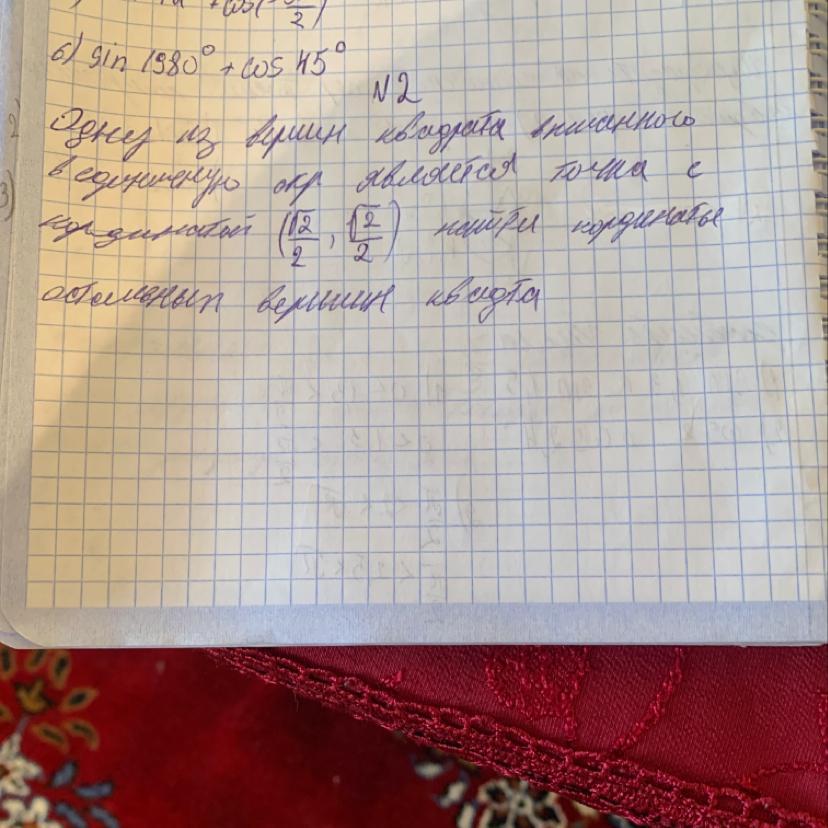 + cos(
2)
б) sin 1980° + cos 45°
N2
Одну из вершин квадрата вписанного
в единичную окр является точка с
кординатой (√2/2, √2/2) найти кординаты
остальных вершин квадта
3)